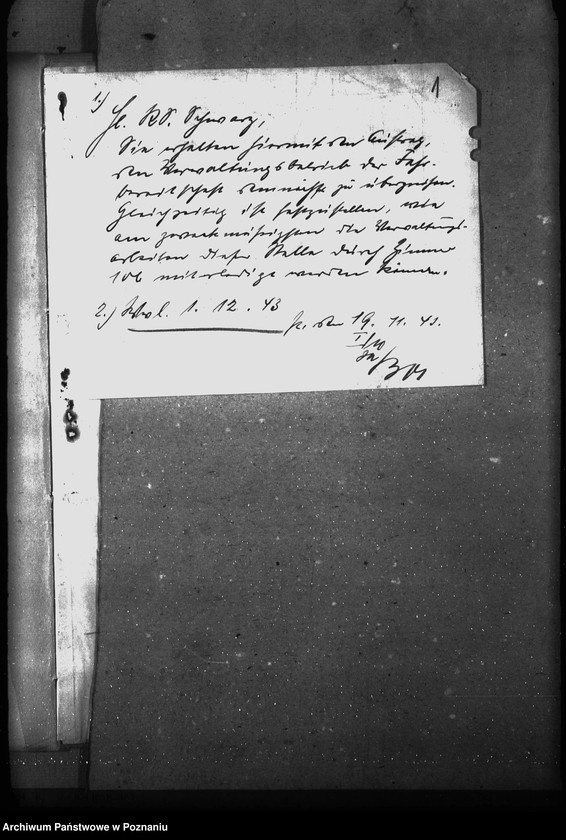 1
1.) H. RS. Schwarz,
Sie erhalten hiermit den Auftrag,
den Verwaltungsbetrieb der Fahr-
bereitschaft demnächst zu überprüfen.
Gleichzeitig ist festzustellen, wie
am zweckmässigsten die Verwaltungs-
arbeiten dieser Stelle durch Zimmer
106 miterledigt werden können.
2.) Wvl. 1. 12. 43
P. den 19. 11. 43.
I/10
Archiwum Państwowe w Poznaniu